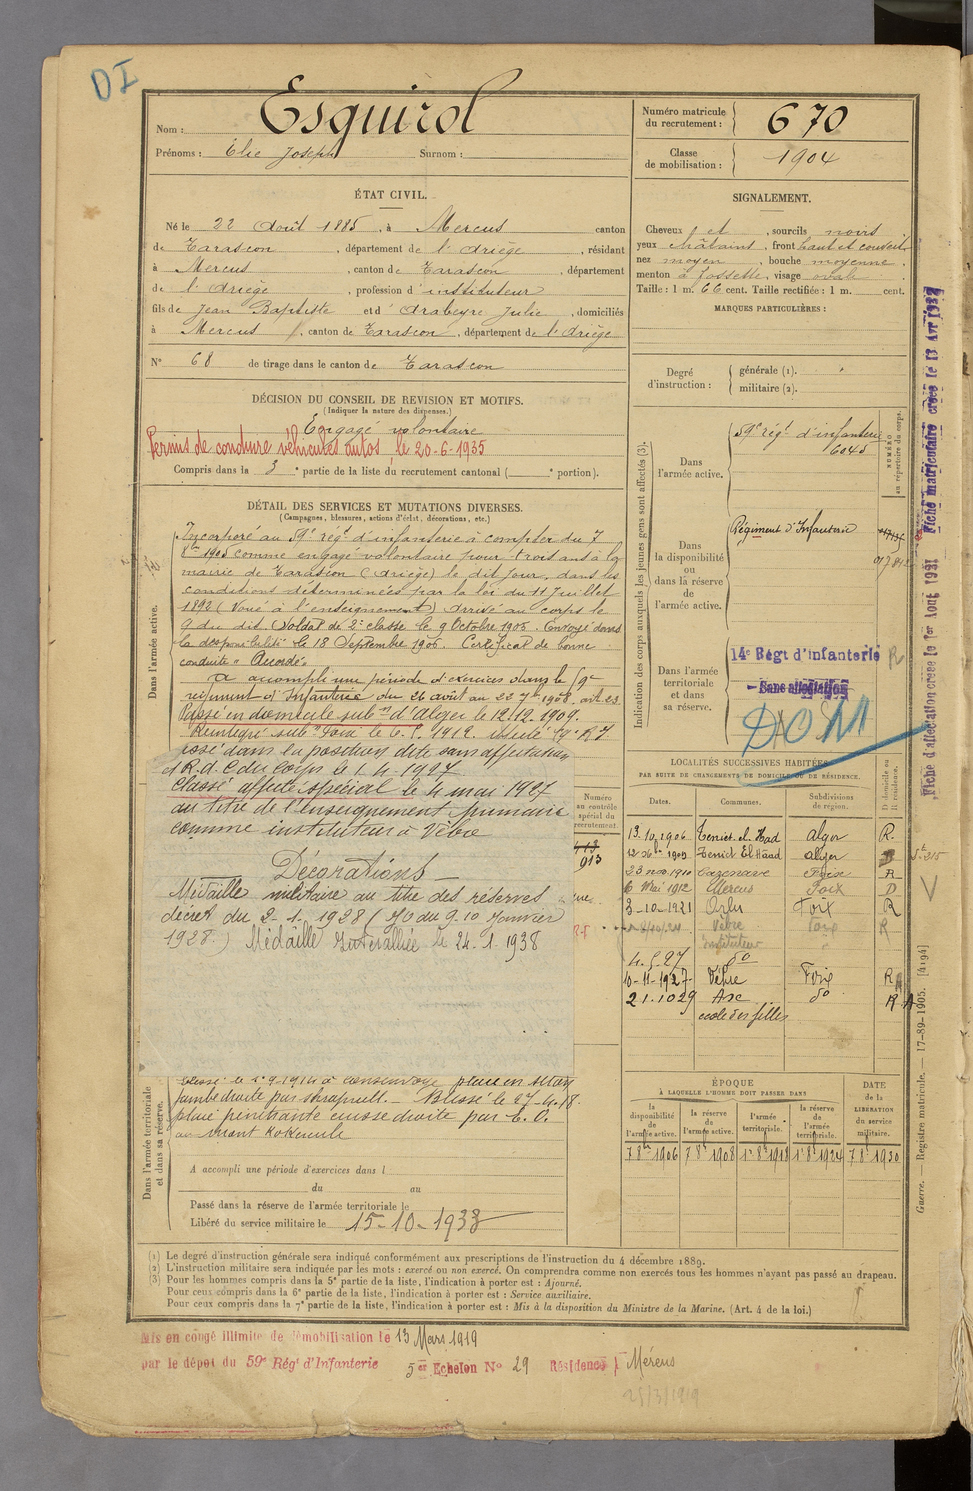 DI
Nom : Esquirol
Prénoms : Elie Joseph Surnom :
Numéro matricule du recrutement : 670
Classe de mobilisation : 1904
ÉTAT CIVIL.
Né le 22 Août 1885, à Mercus canton
de Tarascon, département de l'Ariège, résidant
à Mercus, canton de Tarascon, département
de l'Ariège, profession d'instituteur
fils de Jean Baptiste et d'Arabeyre Julie, domiciliés
à Mercus, canton de Tarascon, département de l'Ariège
N° 68 de tirage dans le canton de Tarascon
SIGNALEMENT.
Cheveux et, sourcils noirs
yeux châtains, front haut et
nez moyen, bouche moyenne.
menton à fossette, visage ovale
Taille : 1 m. 66 cent. Taille rectifiée : 1 m. cent.
MARQUES PARTICULIÈRES :
Degré d'instruction :
générale (1).
militaire (2).
DÉCISION DU CONSEIL DE REVISION ET MOTIFS.
(Indiquer la nature des dispenses.)
Engagé volontaire
Permis de conduire véhicules autos, le 20-6-1935
Compris dans la 3e partie de la liste du recrutement cantonal ( e portion).
DÉTAIL DES SERVICES ET MUTATIONS DIVERSES.
(Campagnes, blessures, actions d'éclat, décorations, etc.)
Dans l'armée active.
Incorporé au 59e régt d'infanterie à compter du 7
8bre 1905 comme engagé volontaire pour trois ans à la
mairie de Tarascon (Ariège) le dit jour, dans les
conditions déterminées par la loi du 11 Juillet
1892 (Voué à l'enseignement) Arrivé au corps le
9 du dit. Soldat de 2e classe le 9 Octobre 1905. Envoyé dans
la disponibilité le 18 Septembre 1906. Certificat de bonne
conduite "Accordé"
A accompli une période d'exercices dans le 59e
régiment d'Infanterie du 26 août au 22 7bre 1908.
Passé en domicile subon d'Alger le 12.12.1909.
Réintégré subon Foix le 1912.
dans la position dite sans affectation
du Corps le 1.4.1927
Classé affecté spécial le 4 mai 1927
au titre de l'enseignement primaire
comme instituteur à Vèbre
Décorations
Médaille militaire au titre des réserves
décret du 2-1-1928 (JO du 9.10 Janvier
1928.) Médaille Interalliée le 24.1.1938
Dans l'armée territoriale et dans sa réserve.
Jambe droite par shrapnell.- Blessé le 27-4-18
plaie pénétrante cuisse droite par E.O.
au mont Kokereele
A accompli une période d'exercices dans l
du au
Passé dans la réserve de l'armée territoriale le
Libéré du service militaire le 15-10-1933
Indication des corps auxquels les jeunes gens sont affectés (3).
NUMÉRO au répertoire du corps.
Dans l'armée active.
59e régt d'infanterie
6045
Dans la disponibilité ou dans la réserve de l'armée active.
Régiment d'Infanterie
Dans l'armée territoriale et dans sa réserve.
14e Régt d'infanterie
Sans affectation
DOM
LOCALITÉS SUCCESSIVES HABITÉES
PAR SUITE DE CHANGEMENTS DE DOMICILE OU DE RÉSIDENCE.
Numéro au contrôle spécial du recrutement
913
Dates. Communes. Subdivisions de région. D domicile ou R résidence.
13.10.1906 Teniet-el-Had Alger R.
1909 Teniet El Hâad Alger D
23 nov 1910 Cazenave Foix R
6 Mai 1912 Mercus Foix D
3-10-1921 Orlu Foix R
Vèbre Foix R
Instituteur
4.5.27 do
10-11-1927 Vèbre Foix R
21.10.29 Axe do R
école des filles
ÉPOQUE
À LAQUELLE L'HOMME DOIT PASSER DANS
la disponibilité de l'armée active.
la réserve de l'armée active.
l'armée territoriale.
la réserve de l'armée territoriale.
DATE de la LIBÉRATION du service militaire.
7 8bre 1906
7 8bre 1908
1er 8bre 1918
1er 8bre 1924
7 8bre 1930
(1) Le degré d'instruction générale sera indiqué conformément aux prescriptions de l'instruction du 4 décembre 1889.
(2) L'instruction militaire sera indiquée par les mots : exercé ou non exercé. On comprendra comme non exercés tous les hommes n'ayant pas passé au drapeau.
(3) Pour les hommes compris dans la 5e partie de la liste, l'indication à porter est : Ajourné.
Pour ceux compris dans la 6e partie de la liste, l'indication à porter est : Service auxiliaire.
Pour ceux compris dans la 7e partie de la liste, l'indication à porter est : Mis à la disposition du Ministre de la Marine. (Art. 4 de la loi.)
Mis en congé illimité de démobilisation le 13 Mars 1919
par le dépôt du 59e Régt d'Infanterie 5e Echelon N° 29 Résidence Mérens
25/3/1919
Fiche d'affectation créée le 1er Août 1931
Fiche matriculaire créée le 13 Avr 1932
Guerre. — Registre matricule. — 17-89-1905. [4194]